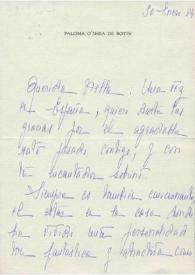 30-Enero 84
PALOMA O'SHEA DE BOTÍN
Querida Una vez
en España, quiero darte las
gracias por el agradable
rato pasado contigo, y con
tu encantador
Siempre es también emocionante
el estar en la casa donde
ha vivido una personalidad
tan fantástica y como